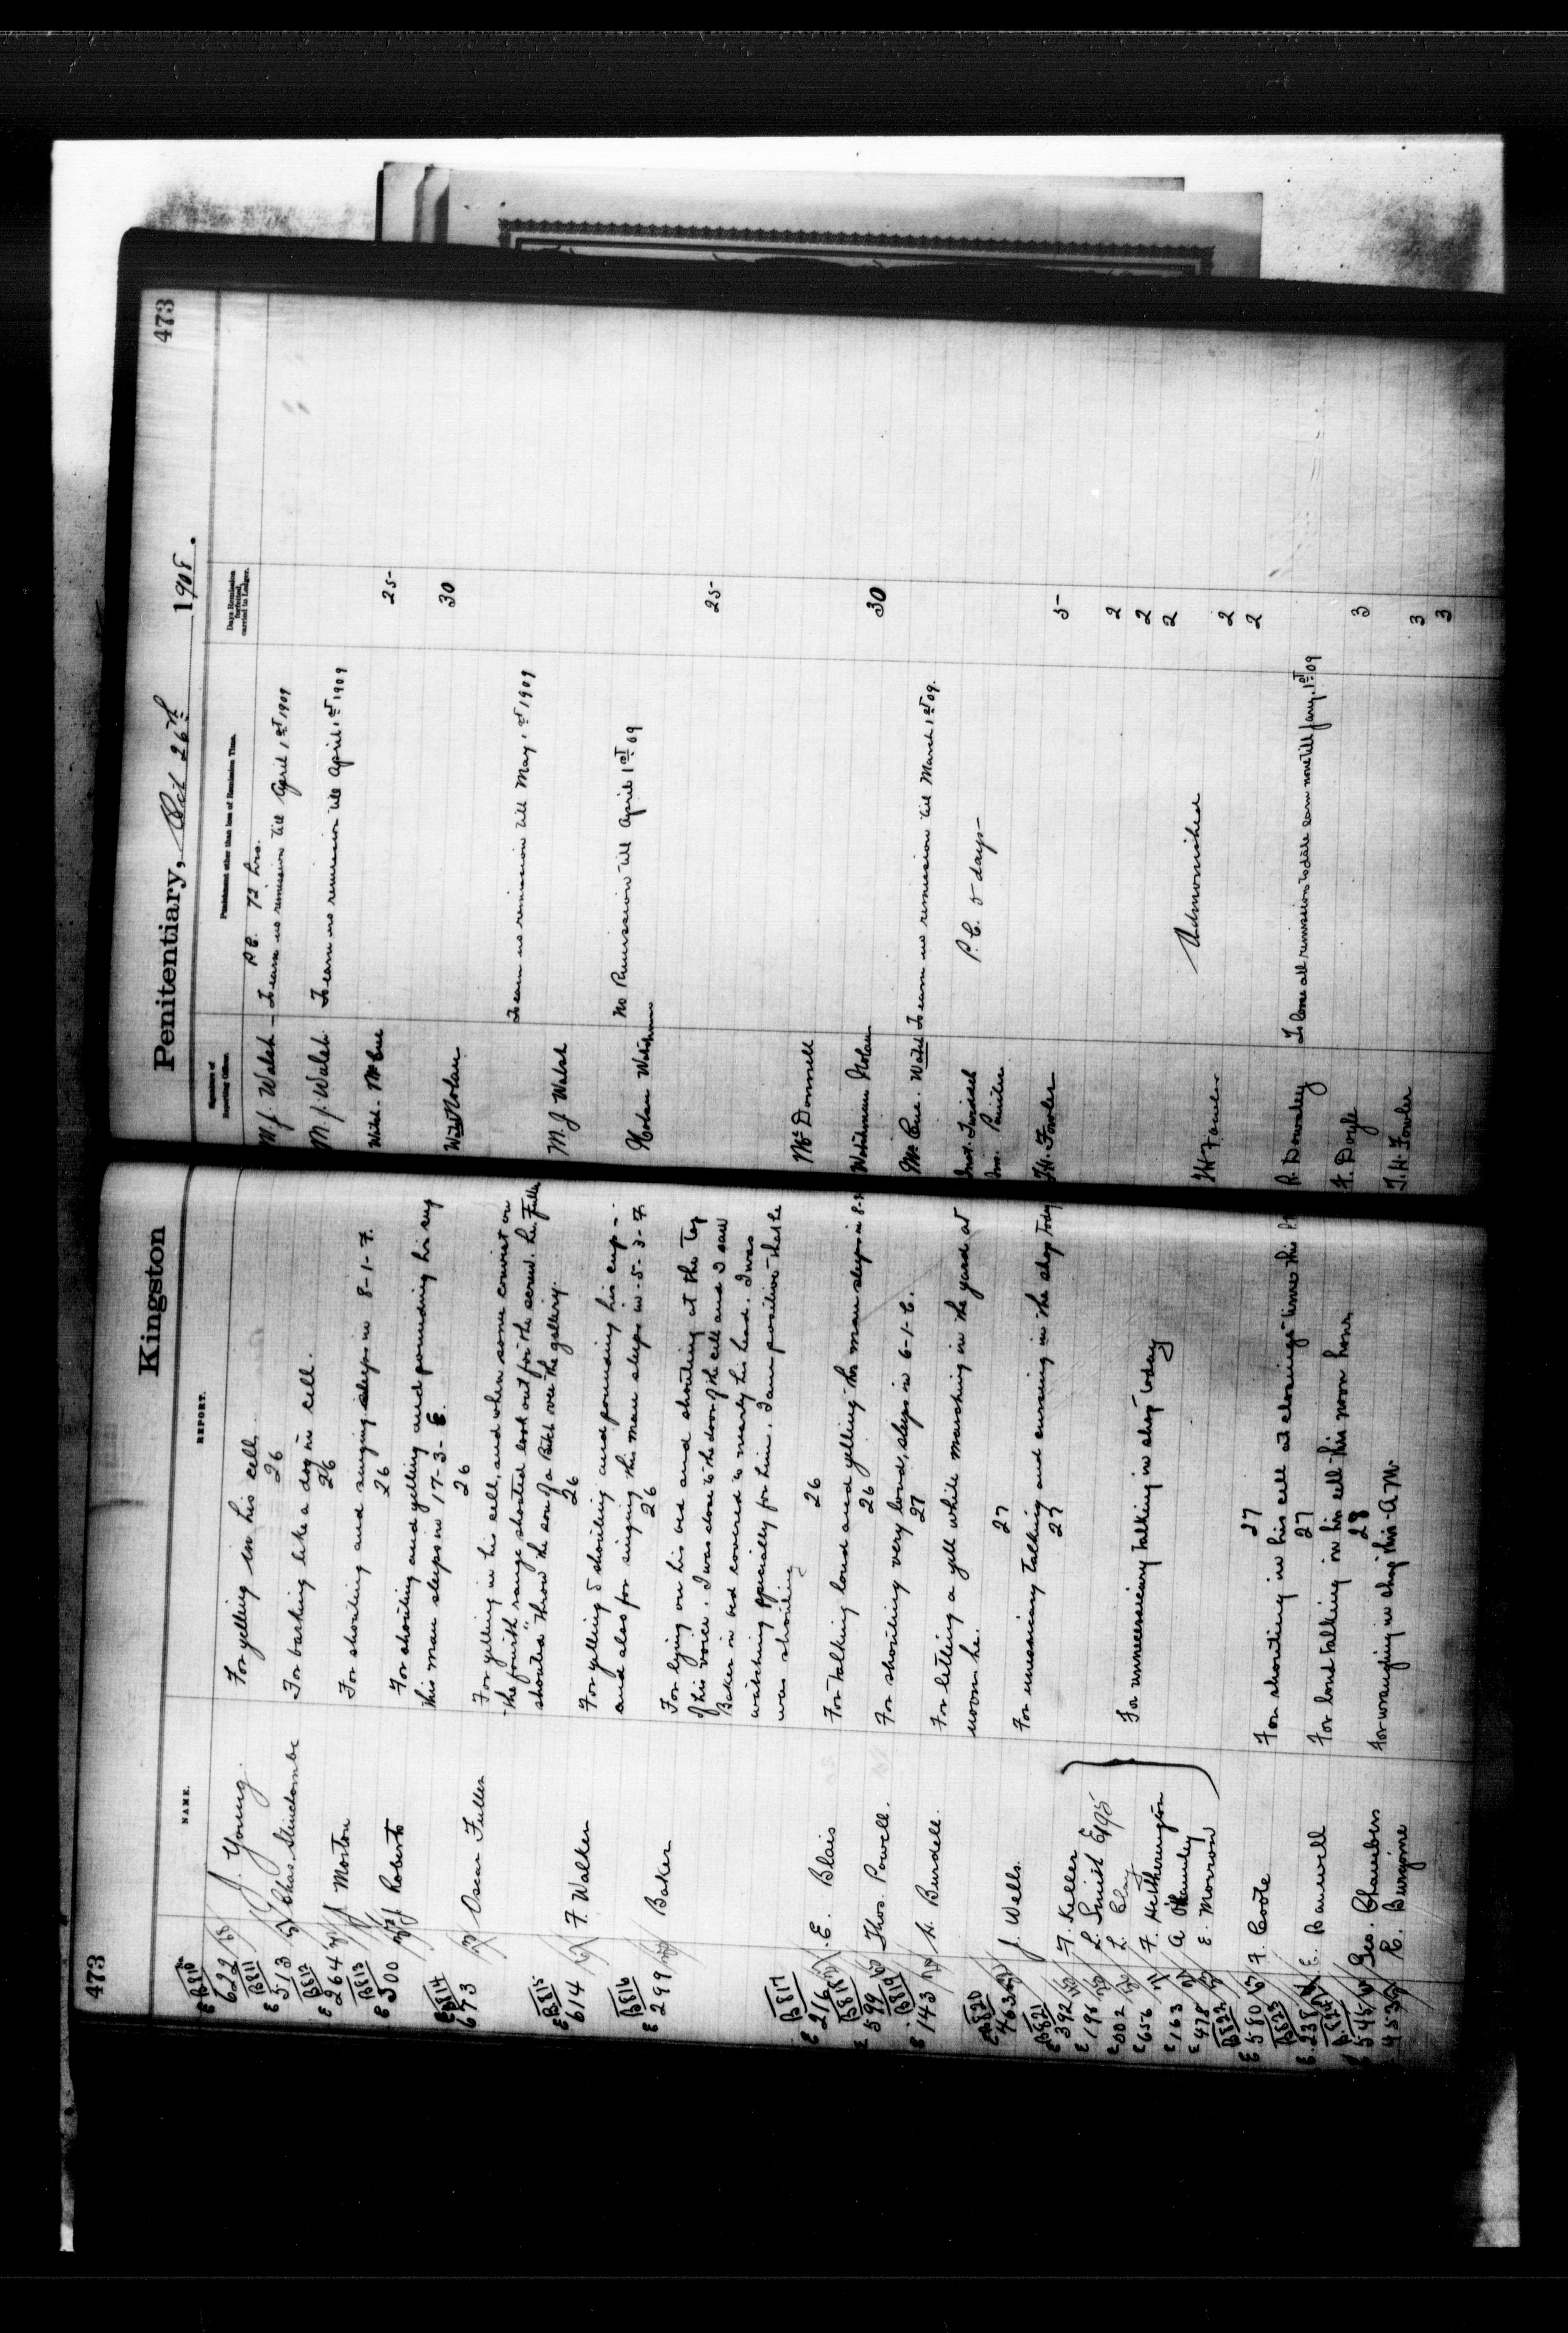 473
Kingston
NAME.
REPORT.
B810
E 622 J. Young.
For yelling in his cell.
26
B811
E 513 Chas. Stinchombe
For barking like a dog in cell.
26
B812
E 264 J Morton
For shouting and singing. sleeps in 8-1-7.
26
B813
E 500 J Roberts
For shouting and yelling and pounding his cup
this man sleeps in 17-3-E.
26
B814
E 673 Oscar Fuller
For yelling in his cell, and when some convict on
the fourth range shouted look out for the screw. he Fuller
shouted "throw the son of a Bitch over the gallery.
26
B815
E 614 F. Walker
For yelling & shouting and pounding his cup -
and also for singing this man sleeps in -5-3-7.
26
B816
E 299 Baker
For lying on his bed and shouting at the top
of his voice. I was close to the door of the cell and I saw
Baker in bed covered to nearly his head. I was
watching specially for him. I am positive that he
was shouting
26
B817
E 216 E. Blais
For talking loud and yelling this man sleeps in
26
B818
E 599 Thos. Powell.
For shouting very loud, sleeps in 6-1-E.
27
B819
E 143 H. Burdell.
For letting a yell while marching in the yard at
noon hr.
27
B820
E 463 J. Wells.
For unessicary talking and cursing in the shop today
27
B821
E 392 F. Keller
E 196 L. Smith E195
E 002 L. Clay
E 656 F. Hetherington
E 163 A
E 478 E. Morrow
For unnecessary talking in shop today
27
B822
E 580 F. Coote
For shouting in his cell at closing time this
27
B823
E 238 E. Banwell
For loud talking in his cell this noon hour
28
B824
E 545 Geo. Chambers
E 453 R. Burgoine
For wrangling in shop this A.M.
Penitentiary, Oct 26th 1908.
473
Signature of Reporting Officer.
Punishment other than loss of Remission Time.
Days Remission forfeited, carried to Ledger.
P.C. 72 hrs.
M. J. Walsh - To earn no remission till April 1st 1909
M. J. Walsh To earn no remission till April 1st 1909
Watch. McCue 25
Watch Nolan 30
To earn no remission till May 1st 1909
M. J Walsh
No Remission till April 1st 09
Nolan Watchman
25
McDonnell
Watchman Nolan 30
McCue. Watch To earn no remission till March 1st 09.
Inst.
Ins. P.C. 5 days
T.H. Fowler 5
2
2
2
Admonished
TH Fowler 2
2
R. Dowsley To lose all remission to date earn none till Jany. 1st 09
F. Doyle 3
T. H. Fowler 3
3